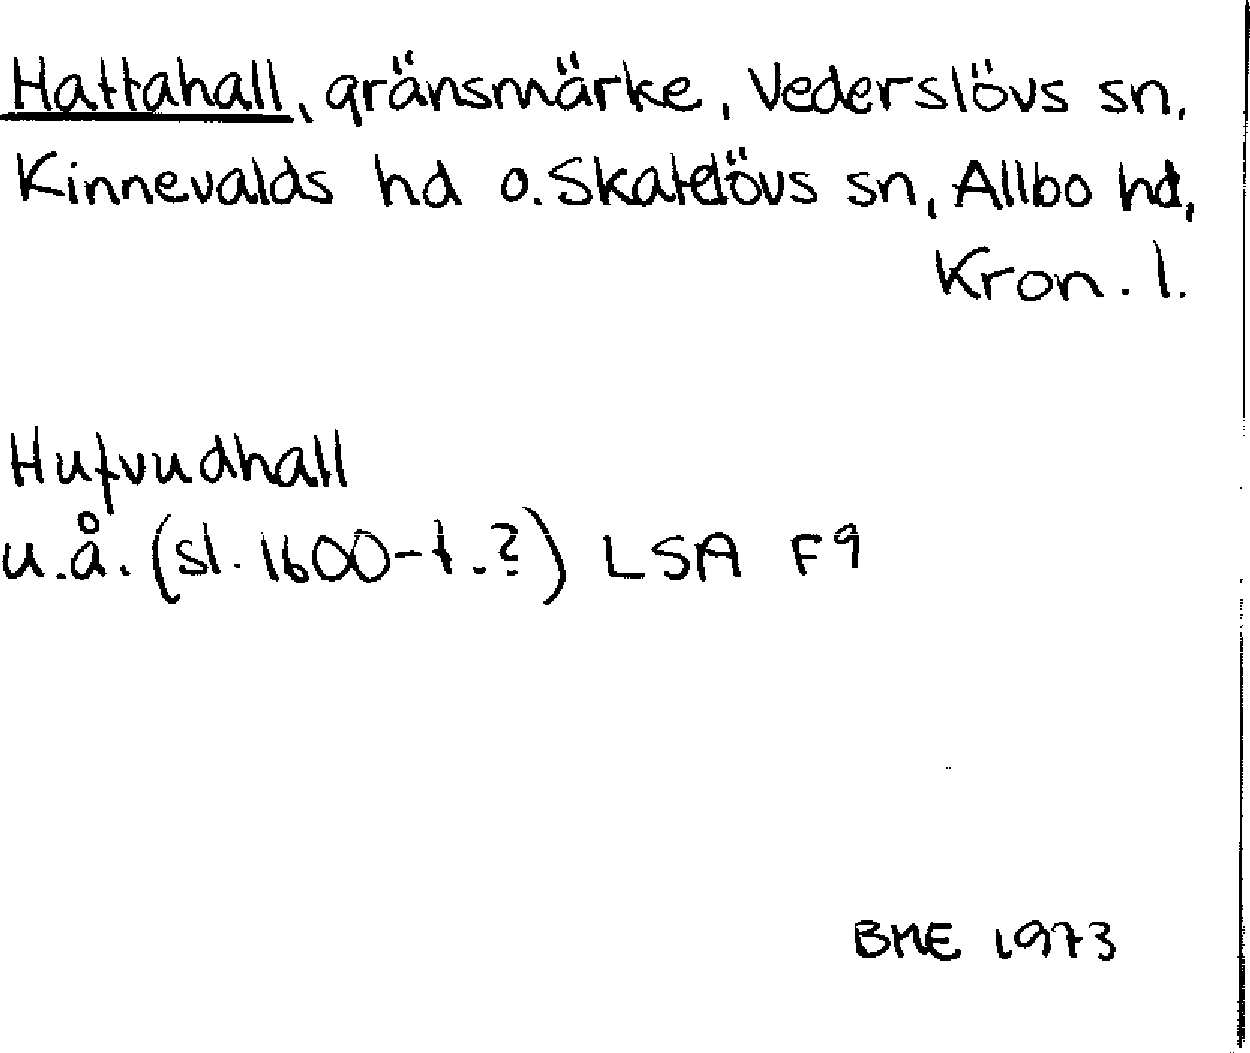 Hattahall, gränsmärke, Vederslövs sn,
Kinnevalds hd o. Skatelövs sn, Allbo hd,
Kron. l.
Hufvudhall
u.å. (sl. 1600-t.?) LSA F9
BME 1973